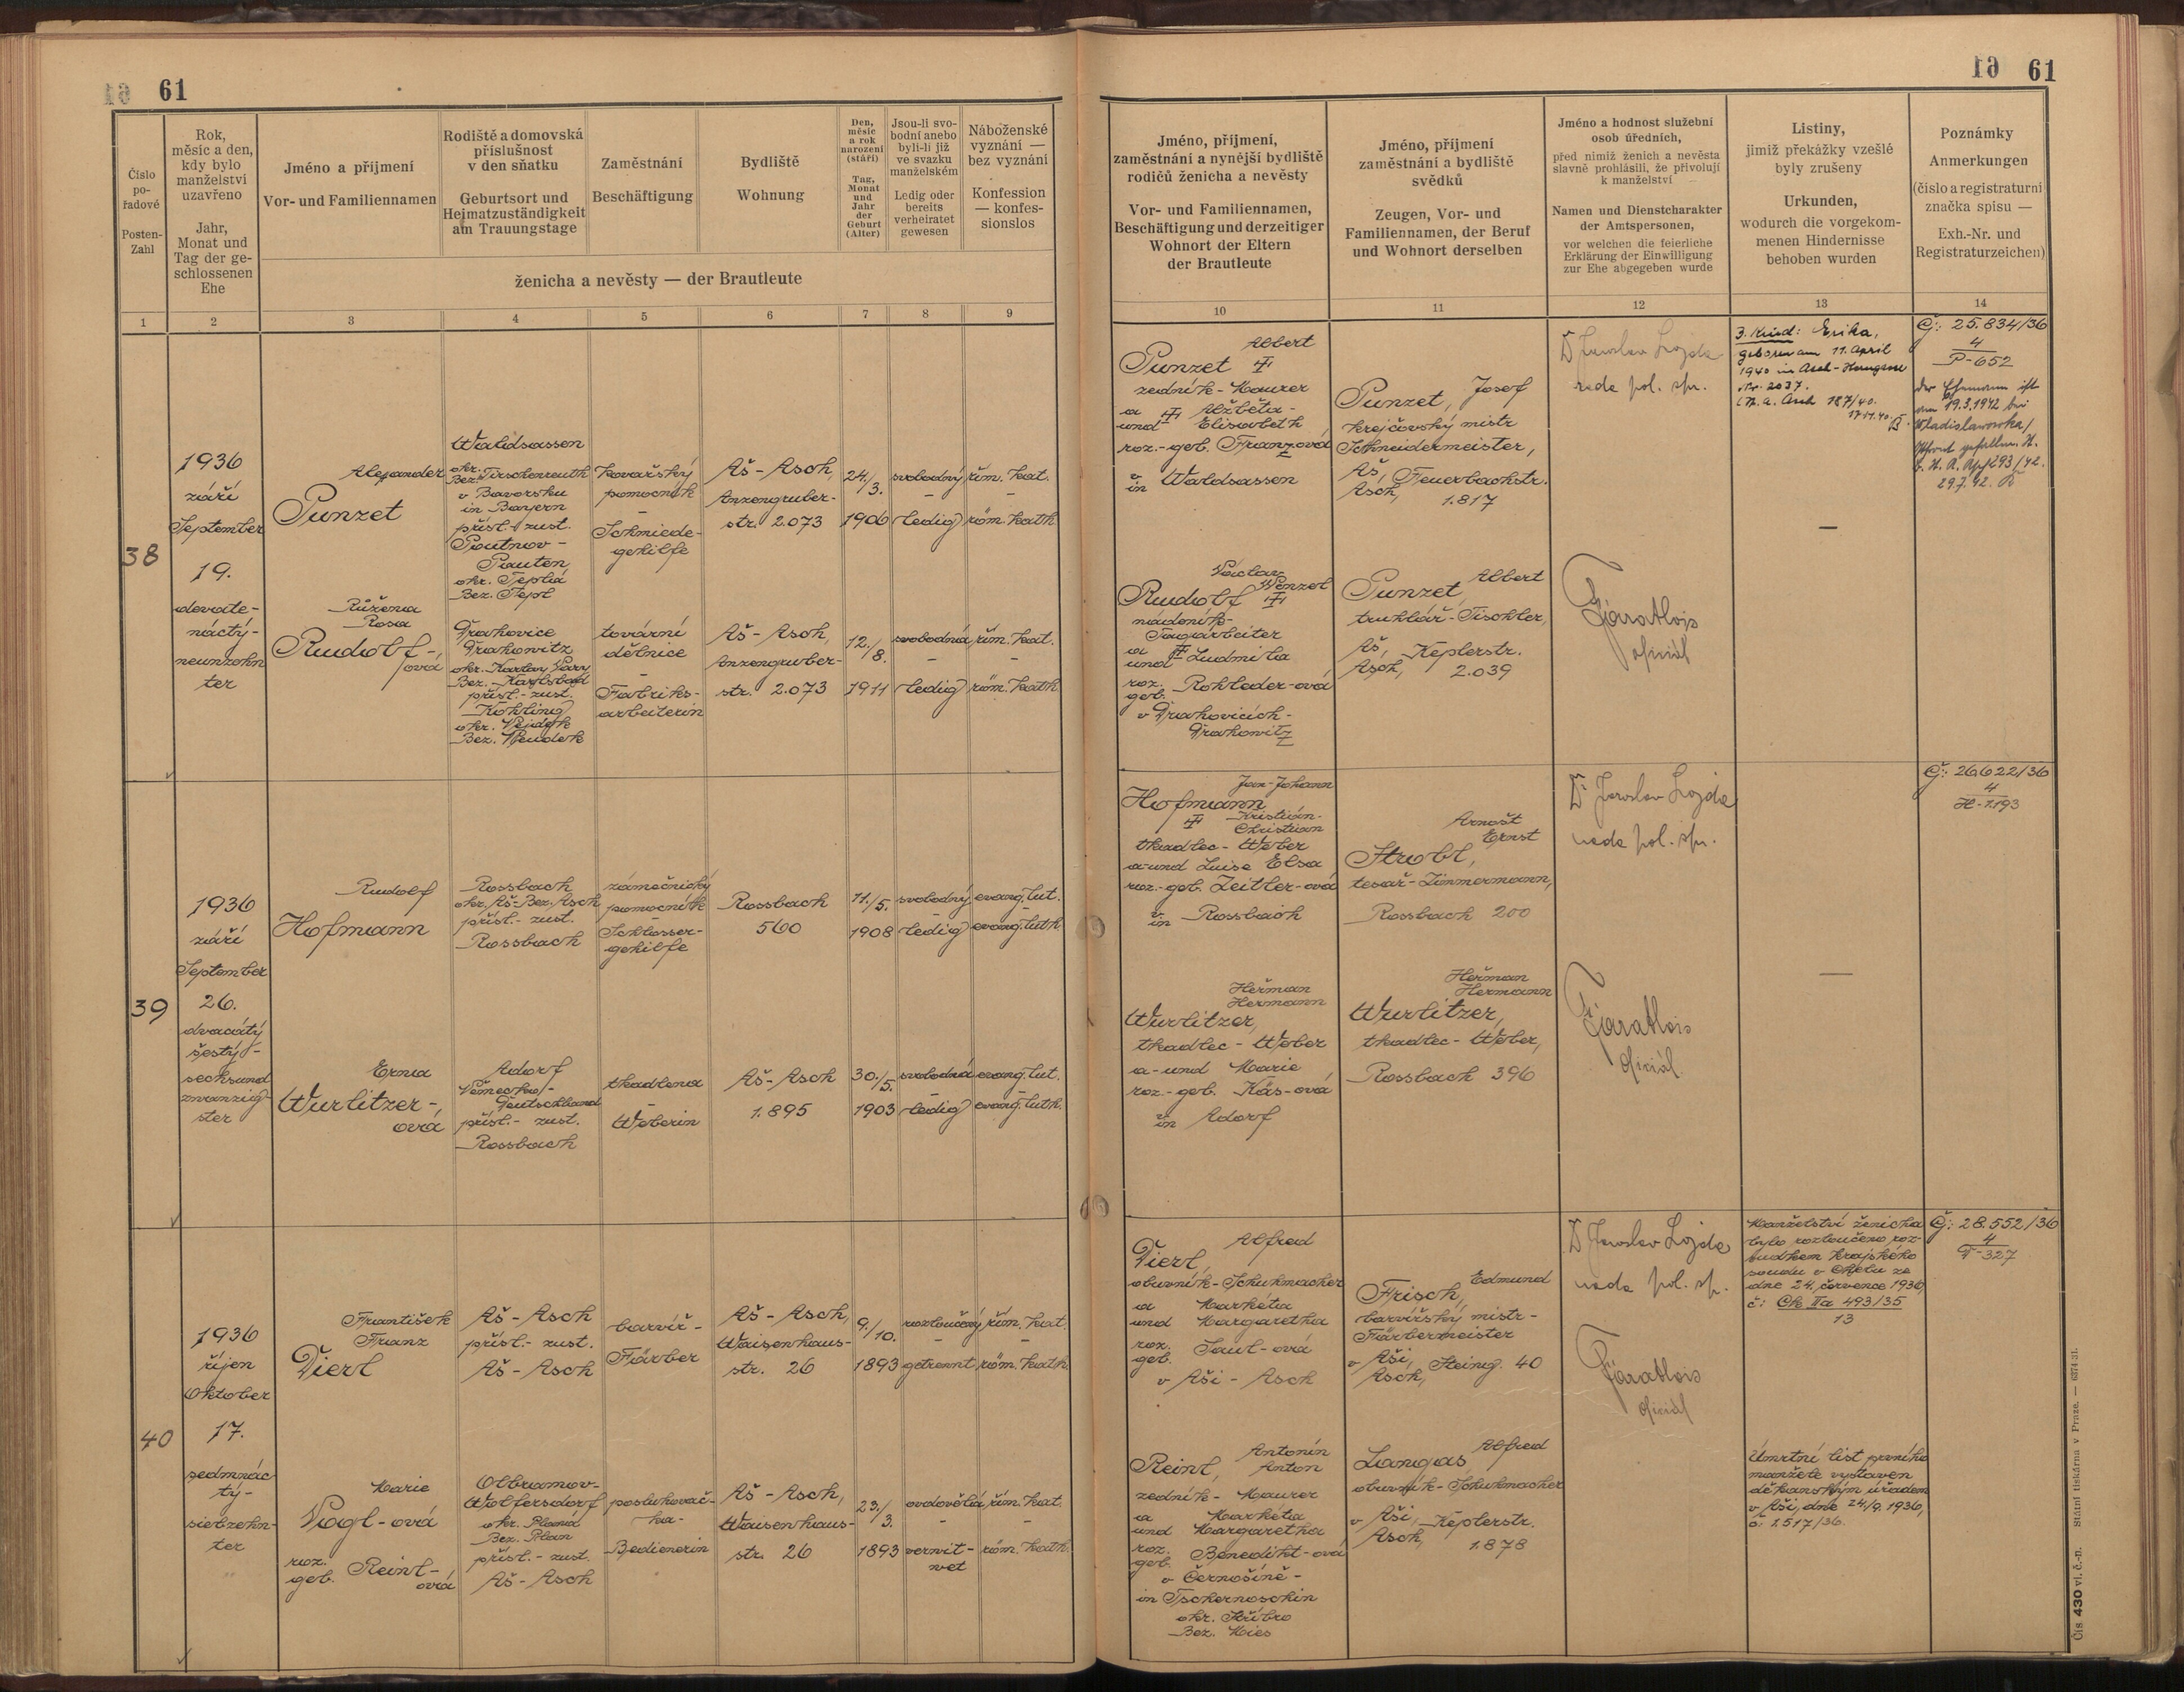 61
61
Číslo po-řadové
Posten-Zahl
Rok, měsíc a den, kdy bylo manželství uzavřeno
Jahr, Monat und Tag der ge-schlossenen Ehe
Jméno a příjmení
Vor- und Familiennamen
Rodiště a domovská příslušnost v den sňatku
Geburtsort und Heimatzuständigkeit am Trauungstage
Zaměstnání
Beschäftigung
Bydliště
Wohnung
Den, měsíc a rok narození (stáří)
Tag, Monat und Jahr der Geburt (Alter)
Jsou-li svo-bodní anebo byli-li již ve svazku manželském
Ledig oder bereits verheiratet gewesen
Náboženské vyznání — bez vyznání
Konfession — konfes-sionslos
ženicha a nevěsty — der Brautleute
1 2 3 4 5 6 7 8 9
38
1936
září
September
19.
devate-
náctý-
neunzehn
ter
Alexander
Punzet
Waldsassen
okr. Bez. Tirschenreuth
v Bavorsku
in Bayern
přísl.- zust.
Poutnov -
Pauten,
okr. Teplá
Bez. Tepl
kovářský
pomocník
-
Schmiede-
gehilfe
Aš - Asch,
Anzengruber-
str. 2.073
24./3.
1906
svobodný
-
ledig
řím. kat.
-
röm. kath.
Růžena
Rosa
Rudolf-
ová
Drahovice
Drahowitz
okr. Karlovy Vary
Bez. Karlsbad
přísl.- zust.
Kohling
okr. Nejdek
Bez. Neudek
tovární
dělnice
-
Fabriks-
arbeiterin
Aš - Asch,
Anzengruber-
str. 2.073
12./8.
1911
svobodná
-
ledig
řím. kat.
-
röm. kath.
39
1936
září
September
26.
dvacátý
šestý -
sechsund
zwanzig-
ster
Rudolf
Hofmann
Rossbach
okr. Aš-Bez. Asch
přísl.- zust.
Rossbach
zámečnický
pomocník
-
Schlosser-
gehilfe
Rossbach
560
11./5.
1908
svobodný
-
ledig
evang. lut.
-
evang. luth.
Erna
Wurlitzer-
ová
Adorf
Německo/-
Deutschland
přísl.- zust.
Rossbach
tkadlena
-
Weberin
Aš-Asch
1.895
30./5.
1903
svobodná
-
ledig
evang. lut.
-
evang. luth.
40
1936
říjen
Oktober
17.
sedmnác
tý-
siebzehn-
ter
František
Franz
Dierl
Aš - Asch
přísl.- zust.
Aš - Asch
barvíř -
Färber
Aš - Asch,
Waisenhaus-
str. 26
9./10.
1893
rozloučený
-
getrennt
řím. kat.
-
röm. kath.
Marie
Vogl-ová
roz. geb. Reinl-
ová
Olbramov-
Wolfersdorf
okr. Planá
Bez. Plan
přísl.- zust.
Aš - Asch
posluhovač-
ka-
Bedienerin
Aš - Asch,
Waisenhaus-
str. 26
23./3.
1893
ovdovělá
-
verwit-
wet
řím. kat.
-
röm. kath.
61
61
Jméno, příjmení, zaměstnání a nynější bydliště rodičů ženicha a nevěsty
Vor- und Familiennamen, Beschäftigung und derzeitiger Wohnort der Eltern der Brautleute
Jméno, příjmení zaměstnání a bydliště svědků
Zeugen, Vor- und Familiennamen, der Beruf und Wohnort derselben
Jméno a hodnost služební osob úředních,
před nimiž ženich a nevěsta slavně prohlásili, že přivolují k manželství
Namen und Dienstcharakter der Amtspersonen,
vor welchen die feierliche Erklärung der Einwilligung zur Ehe abgegeben wurde
Listiny, jimiž překážky vzešlé byly zrušeny
Urkunden, wodurch die vorgekom-menen Hindernisse behoben wurden
Poznámky
Anmerkungen
(číslo a registraturní značka spisu —
Exh.-Nr. und Registraturzeichen)
10 11 12 13 14
Albert
Punzet
zedník - Maurer
a und Alžběta -
Elisabeth
roz.- geb. Franz-ová
v in Waldsassen
Punzet, Josef
krejčovský mistr
Schneidermeister,
Aš, Asch, Feuerbachstr.
1.817
Dr Jaroslav Lojda
rada pol. spr.
3. Kind: Erika,
geboren am 11. April
1940 in Asch-
Nr. 2037.
(St. A. Asch 187/40.
Č: 25.834/36
4
P-652
Der Ehemann ist
am 19.3.1942 bei
Wladislawowka/
Ostfront gefallen.
29.7.42.
Václav
Wenzel
Rudolf
nádeník-
Tagarbeiter
a und Ludmila
roz. geb. Rohleder-ová
v Drahovicích -
Drahowitz
Punzet, Albert
truhlář - Tischler,
Aš, Asch, Keplerstr.
2.039
oficiál
—
Jan-Johann
Hofmann
Kristián-
Christian
tkadlec - Weber
a-und Luise Elsa
roz.- geb. Zeitler-ová
v in Rossbach
Arnošt
Ernst
Strobl,
tesař - Zimmermann,
Rossbach 200
Dr Jaroslav Lojda
rada pol. spr.
Č: 26.622/36
4
H-1.193
Heřman
Hermann
Wurlitzer,
tkadlec - Weber
a-und Marie
roz.- geb. Käs-ová
v in Adorf
Heřman
Hermann
Wurlitzer,
tkadlec - Weber,
Rossbach 396
oficiál
—
Alfred
Dierl,
obuvník - Schuhmacher
a und Markéta
Margaretha
roz. geb. Saul-ová
v Aši - Asch
Frisch, Edmund
barvířský mistr -
Färbermeister
v Aši, Asch, Steing. 40
Dr Jaroslav Lojda
rada pol. sp.
oficiál
Manželství ženicha
bylo rozloučeno roz-
sudkem krajského
soudu v Chebu ze
dne 24. července 1936,
č: Ck IIa 493/35
13
Č: 28.552/36
4
D-327
Antonín
Anton
Reinl,
zedník - Maurer
a und Markéta
Margaretha
roz. geb. Benedikt-ová
v Černošíně -
in Tschernoschin
okr. Stříbro
Bez. Mies
Alfred
Langas,
obuvník - Schuhmacher
v Aši, Asch, Keplerstr.
1.878
Úmrtní list prvního
manžela vystaven
děkanským úřadem
v Aši, dne 24/9. 1936,
č: 1517/36.
Čís 430 vl. č.-n. Státní tiskárna v Praze. — 6374-31.